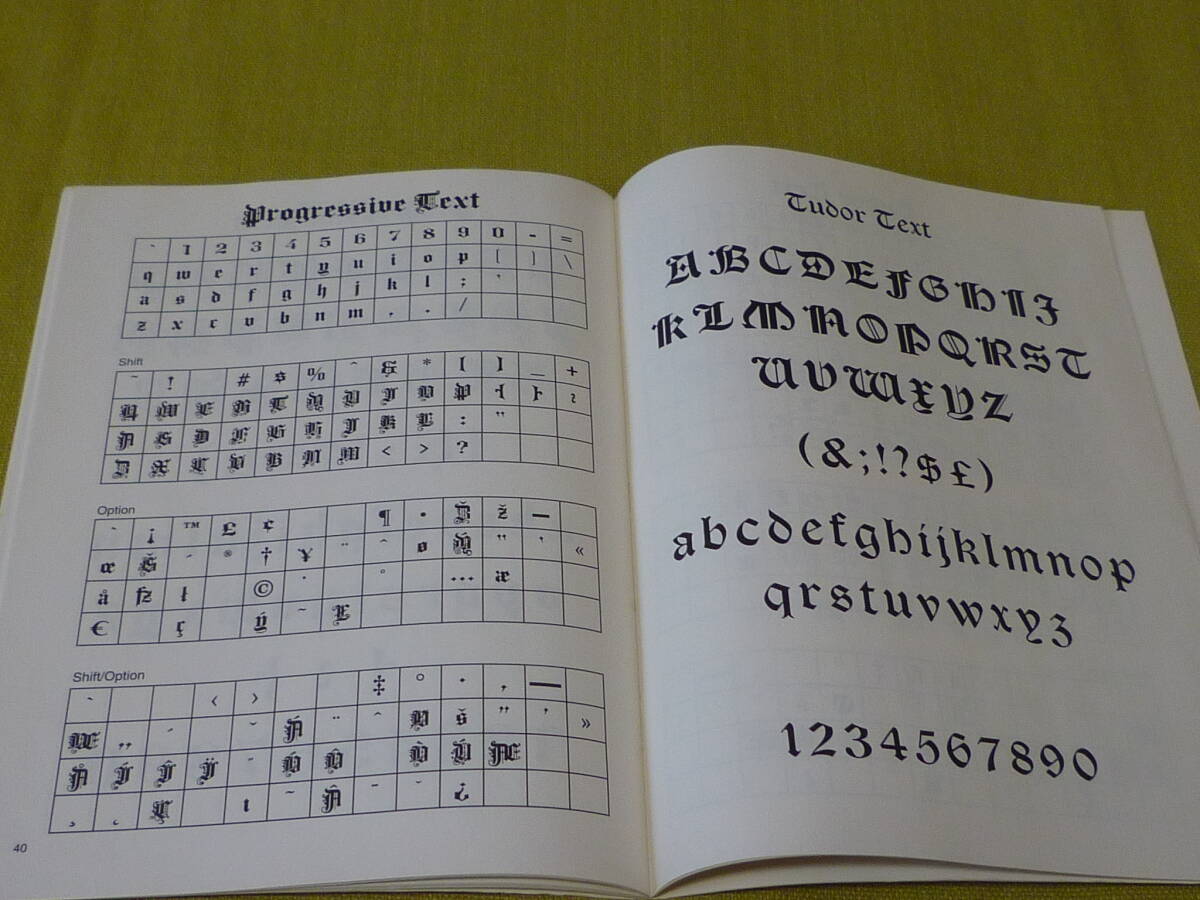 Progressive Text
` 1 2 3 4 5 6 7 8 9 0 - =
q w e r t y u i o p [ ] \
a s d f g h j k l ; '
z x c v b n m , . /
Shift
~ ! # $ % ^ & * ( ) _ +
Q W E R T Y U I O P { }
A S D F G H J K L : "
Z X C V B N M < > ?
Option
` ¡ ™ £ ¢ ¶ • ž –
œ ´ ® † ¥ ¨ ˆ ø " ' «
å ł © ˙ ° … æ
€ ç ý ˜
Shift/Option
` ‹ › ‡ ° · ‚ —
Œ „ ´ ˇ ¨ ˆ š ” ’ »
Å Æ
¸ ˛ Ç ı ˜ ¯ ˘ ¿
40
Tudor Text
ABCDEFGHIJ
KLMNOPQRST
UVWXYZ
(&;!?$£)
abcdefghijklmnop
qrstuvwxyz
1234567890